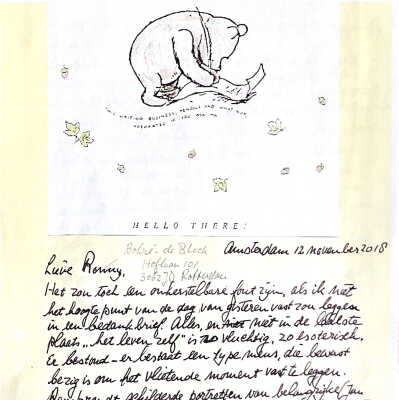 THIS WRITING BUSINESS. PENCILS AND WHAT NOT.
OVERRATED IF YOU ASK ME
HELLO THERE!
Amsterdam 12 november 2018
Hoflaan 101
Rotterdam
Lieve Ronny,
Het zou toch een onherstelbare fout zijn, als ik niet
het hoogtepunt van de dag van gisteren vast zou leggen
in een bedankbrief. Alles, en niet in de laatste
plaats "het leven zelf" is zo vluchtig, zo esoterisch.
Er bestond – er bestaat een type mens, die bewust
bezig is om het vlietende moment vast te leggen.
geschilderde portretten van belangrijke